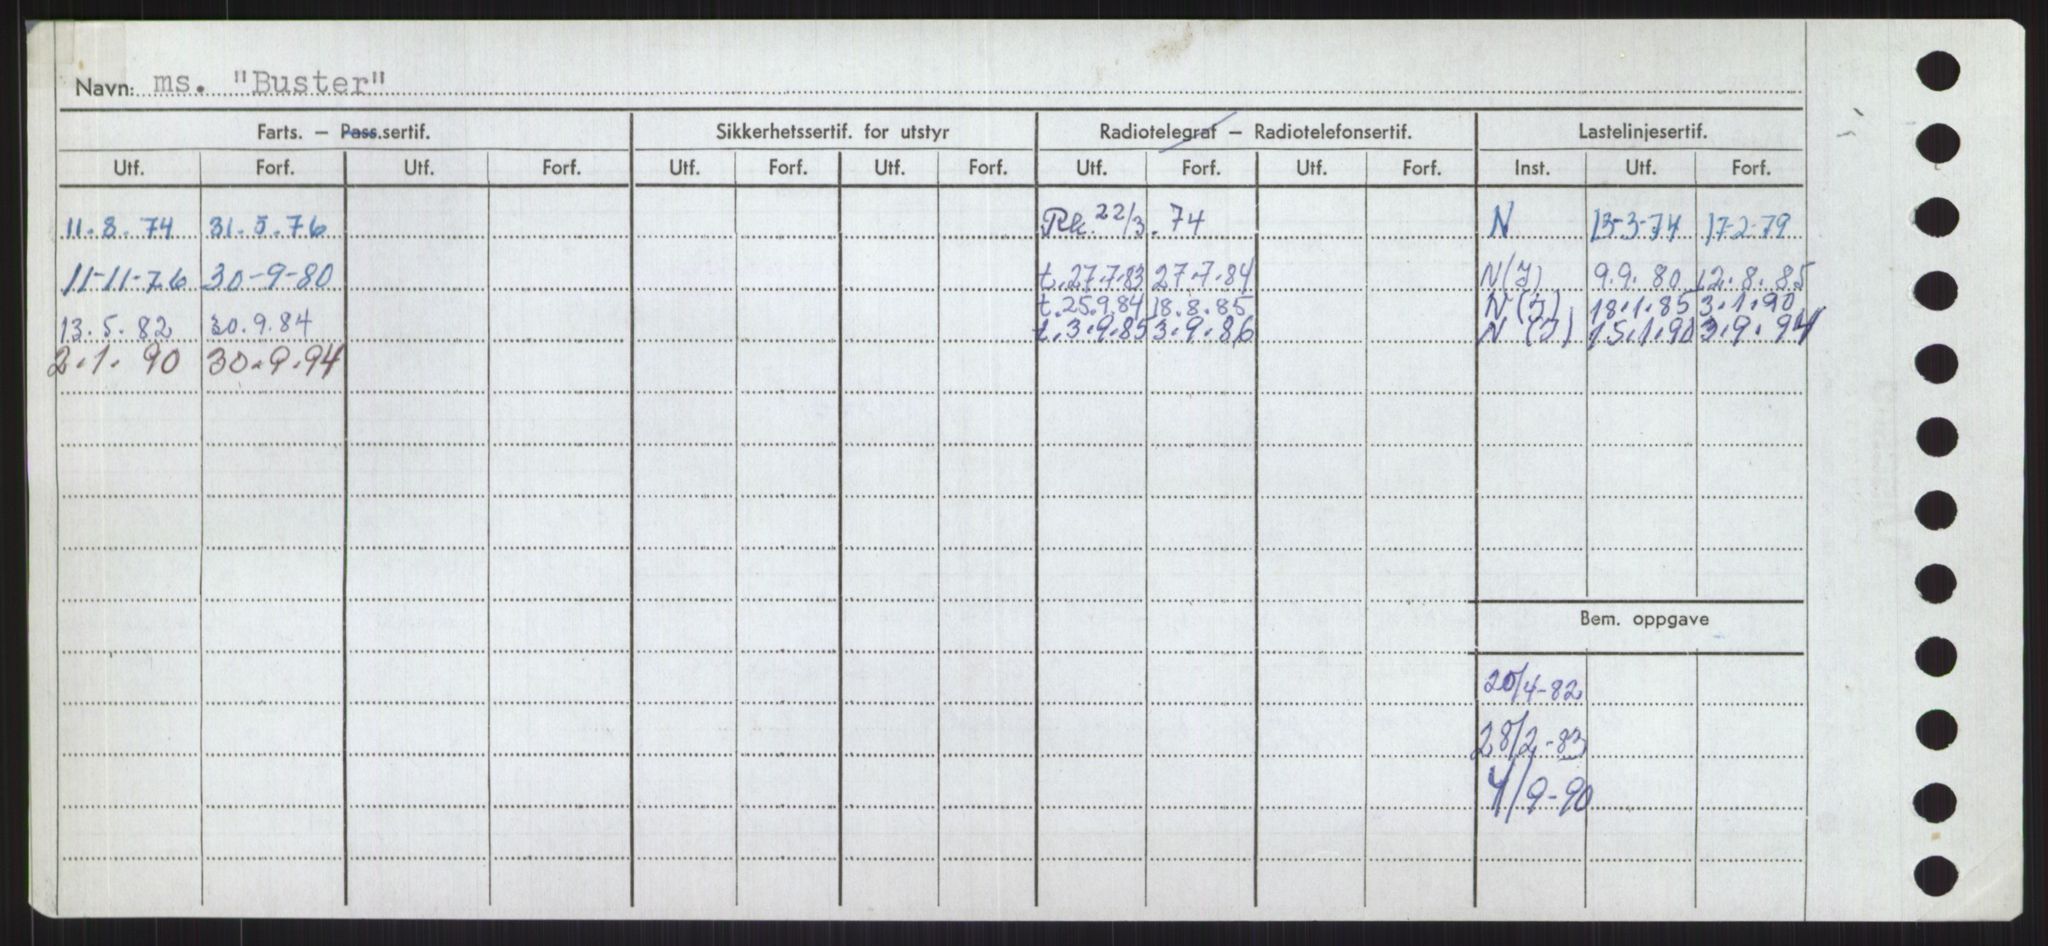 Navn: ms. "Buster"
Farts. – Pass.sertif. Sikkerhetssertif. for utstyr Radiotelegraf – Radiotelefonsertif. Lastelinjesertif.
Utf. Forf. Utf. Forf. Utf. Forf. Utf. Forf. Utf. Forf. Utf. Forf. Inst. Utf. Forf.
11.3.74 31.5.76 22/3.74 N 13-3-74 17-2-79
11-11-76 30-9-80 t.27.7.83 27.7.84 N(J) 9.9.80 12.8.85
t.25.9.84 18.8.85 N(J) 18.1.85 3.1.90
13.5.82 30.9.84 t.3.9.85 3.9.86 N(J) 15.1.90 3.9.94
2.1.90 30.9.94
Bem. oppgave
20/4-82
28/2-83
4/9-90